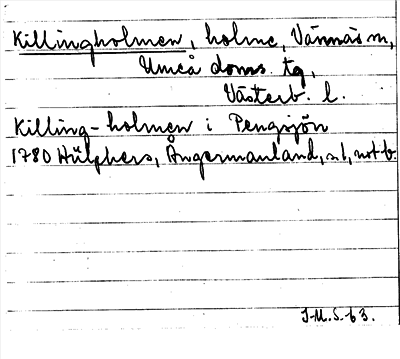 Killingholmen, holme, Vännäs sn,
Umeå doms. tg,
Västerb. l.
Killing-holmen i Pengsjön
1780 Hülphers, Ångermanland, s. 1, not b.
J-M.S. 63.